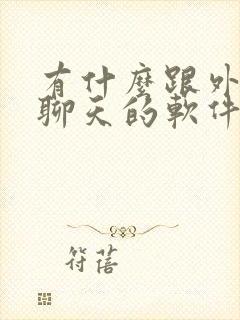 有什麼跟外
聊天的軟件
符蓓